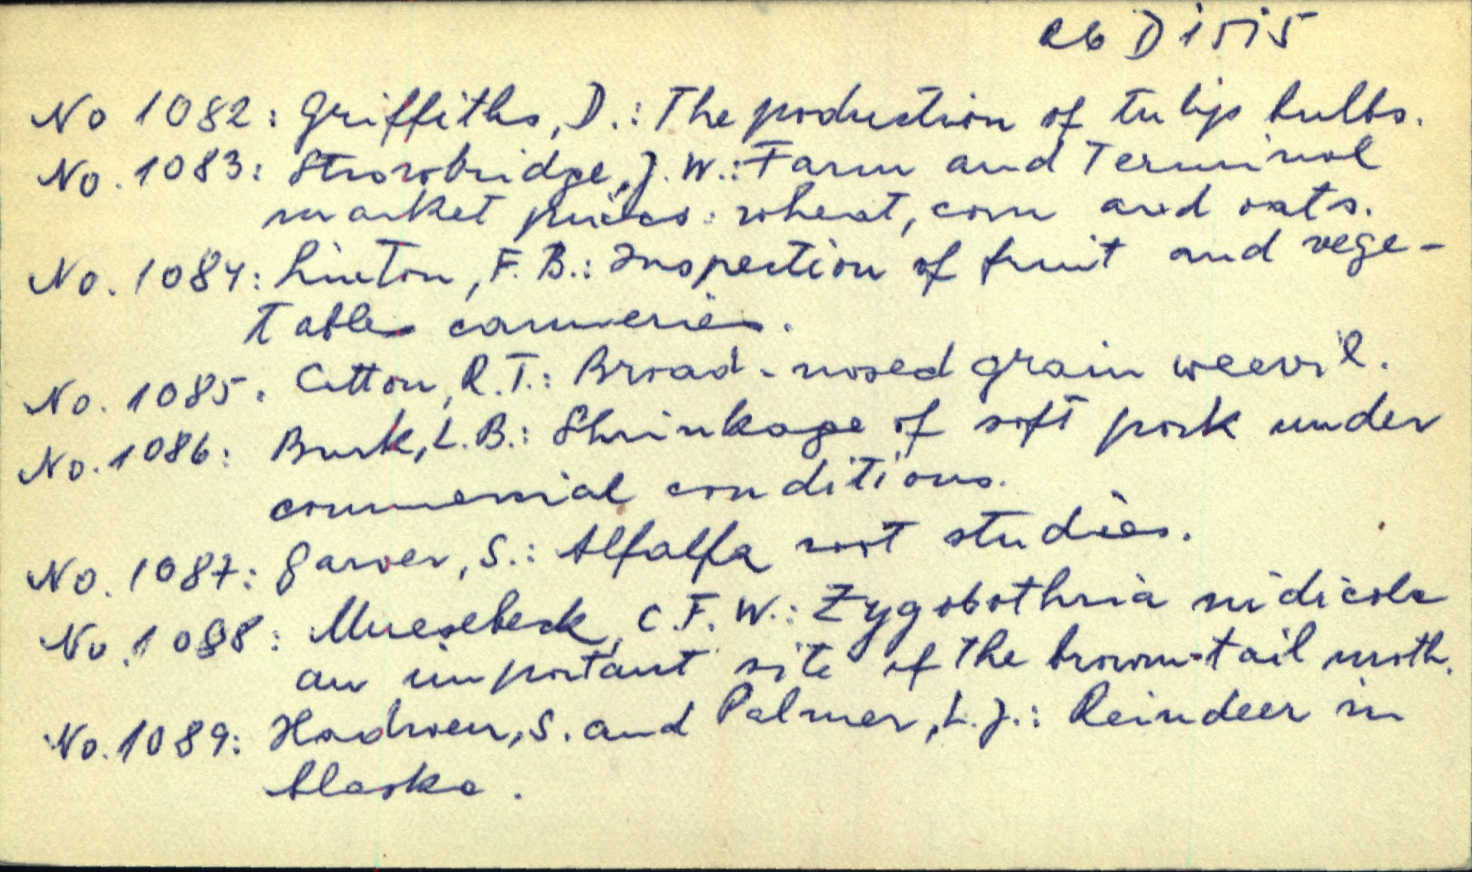 Cb D 1515
No 1082: Griffiths, D.: The production of tulip bulbs.
No. 1083: Strowbridge, J. W.: Farm and Terminal
market prices: wheat, corn and oats.
No. 1084: Linton, F. B.: Inspection of fruit and vege-
tables canneries.
No. 1085: Cotton, R. T.: Broad-nosed grain weevil.
No. 1086: Burk, L. B.: Shrinkage of soft pork under
commercial conditions.
No. 1087: Garver, S.: Alfalfa root studies.
No. 1088: Muesebeck, C. F. W.: Zygobothria nidicola
an important site of the brown-tail moth.
No. 1089: Hadwen, S. and Palmer, L. J.: Reindeer in
Alaska.